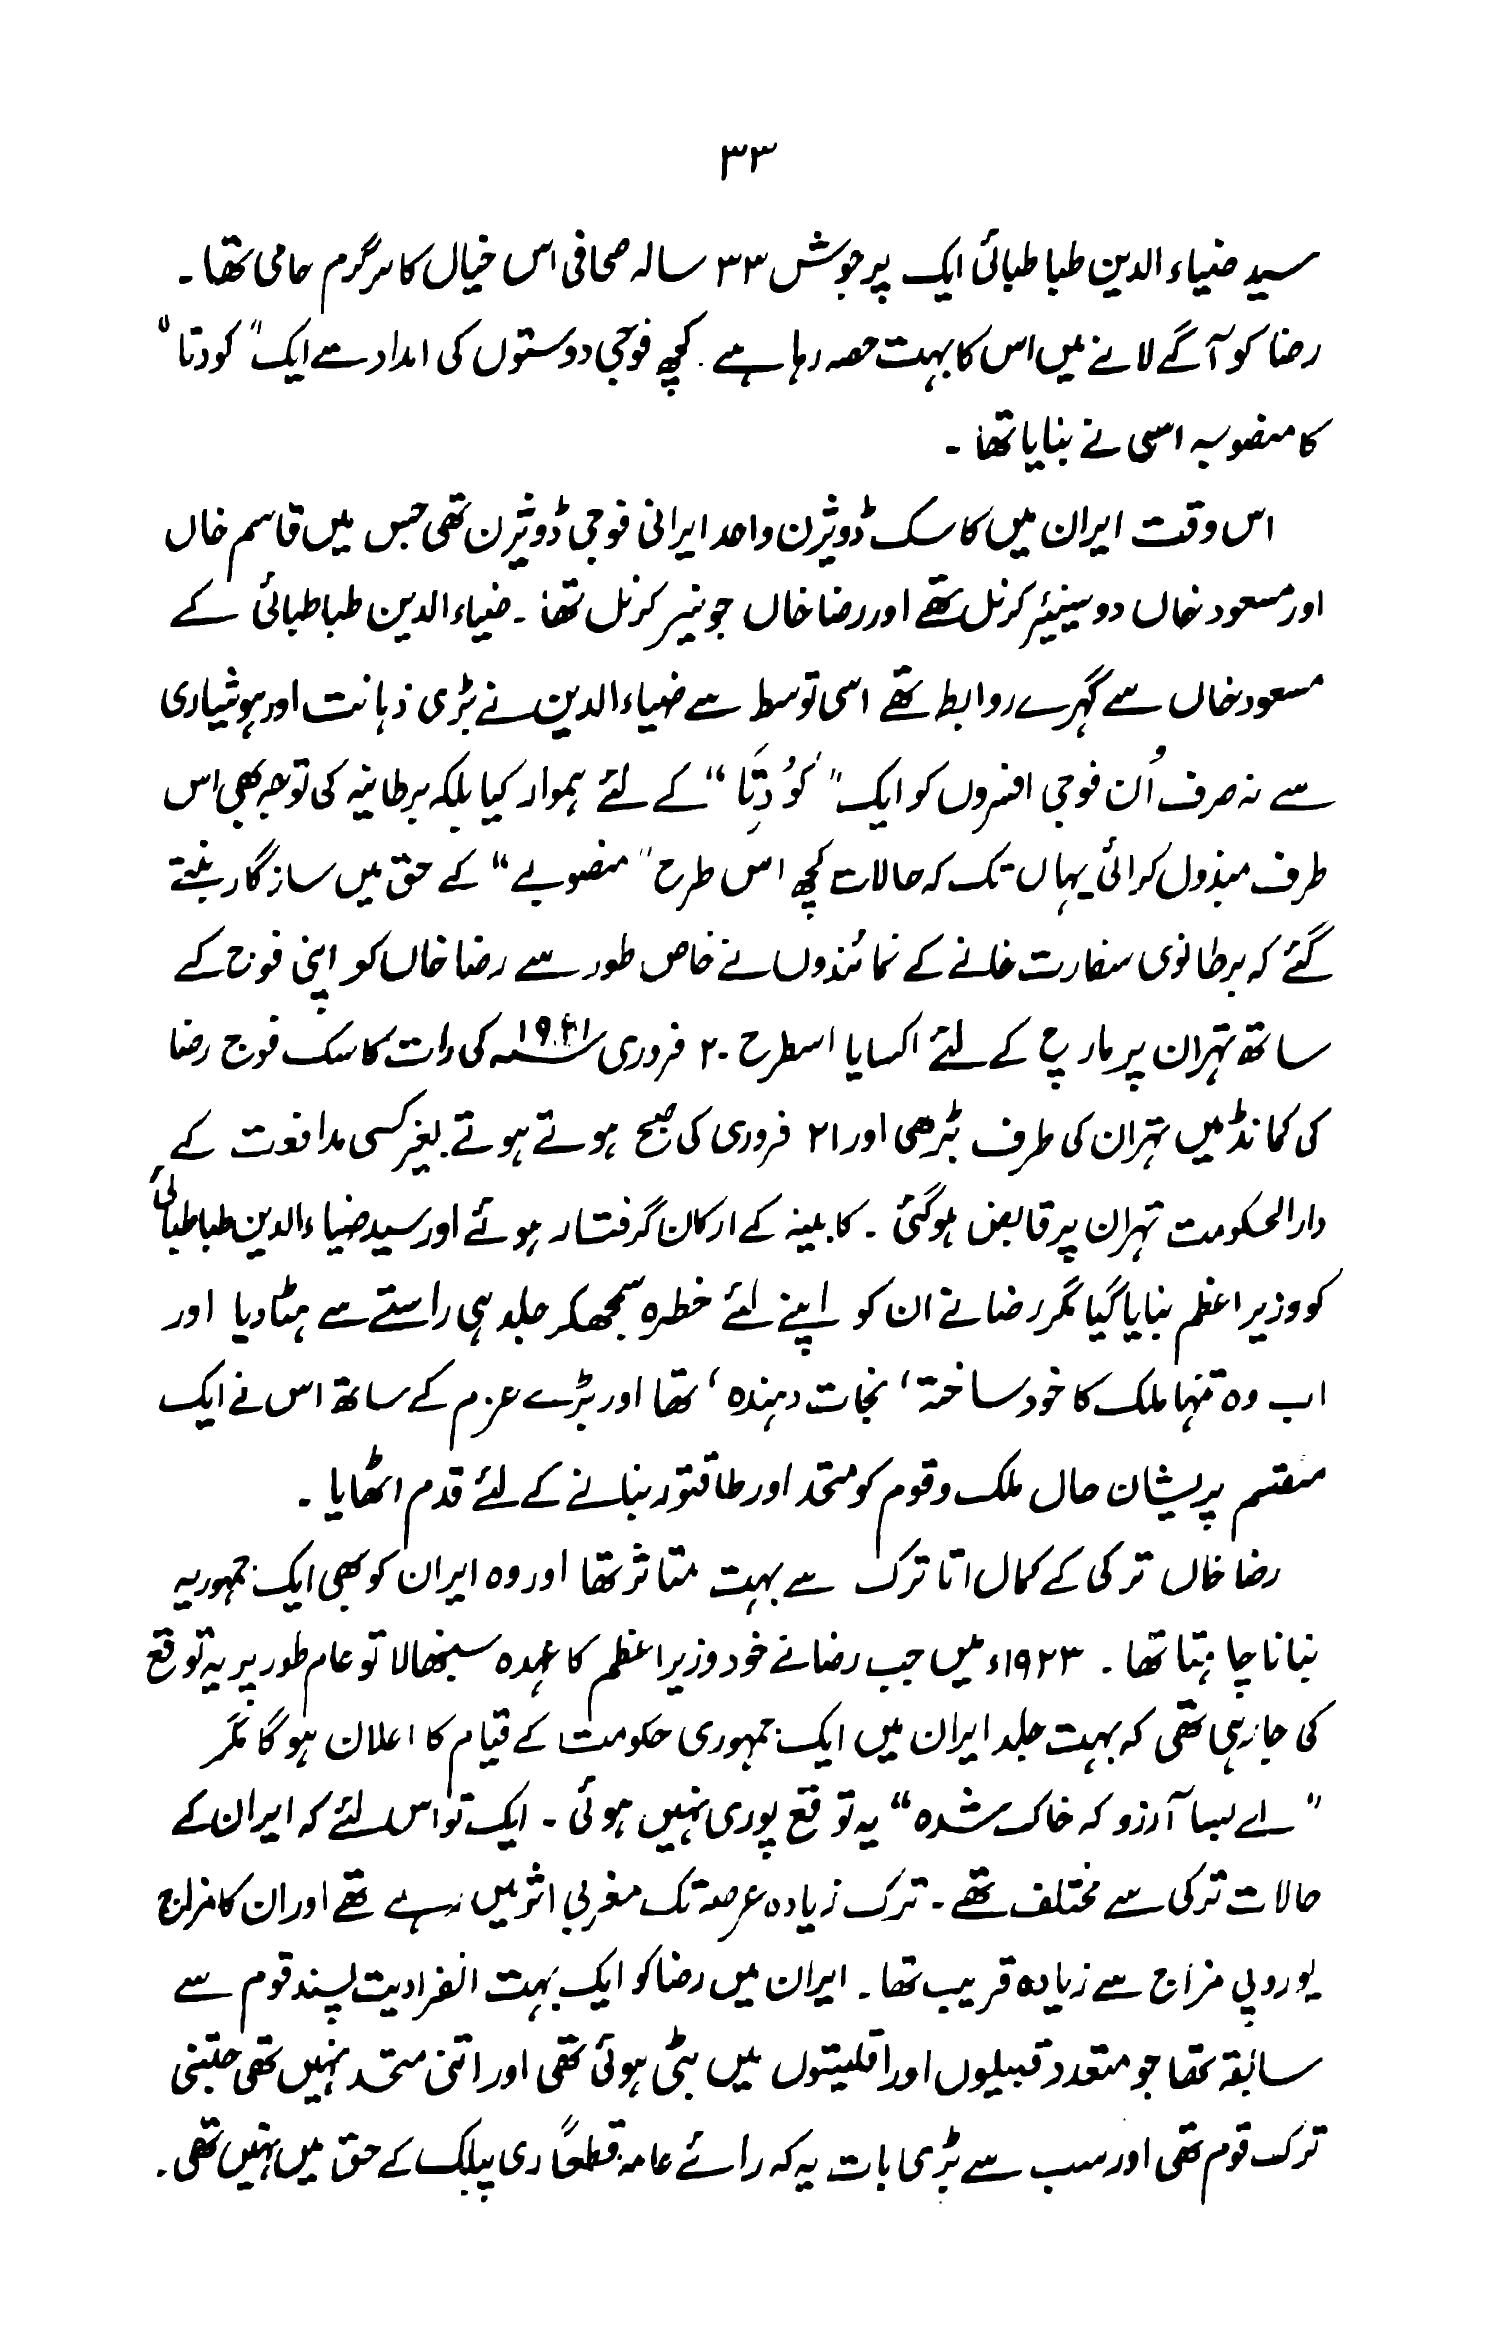 ۳۳
سید ضیاء الدین طبا طبائی ایک پر جوش ۳۳ سالہ صحافی اس خیال کا سرگرم حامی تھا ۔
رضا کو آگے لانے میں اس کا بہت حصہ رہا ہے ۔ کچھ فوجی دوستوں کی امداد سے ایک "کودتا"
کا منصوبہ اسی نے بنایا تھا ۔
اس وقت ایران میں کاسک ڈویژن واحد ایرانی فوجی ڈویژن تھی جس میں قاسم خاں
اور مسعود خاں دو سینیئر کرنل تھے اور رضا خاں جونیر کرنل تھا ۔ ضیاء الدین طباطبائی کے
مسعود خاں سے گہرے روابط تھے اسی توسط سے ضیاء الدین نے بڑی ذہانت اور ہوشیاری
سے نہ صرف اُن فوجی افسروں کو ایک "کُودِتَا" کے لئے ہموار کیا بلکہ برطانیہ کی توجہ بھی اس
طرف مبذول کرائی یہاں تک کہ حالات کچھ اس طرح "منصوبے" کے حق میں سازگار بنتے
گئے کہ برطانوی سفارت خانے کے نمائندوں نے خاص طور سے رضا خاں کو اپنی فوج کے
ساتھ تہران پر مارچ کے لئے اکسایا اسطرح ۲۰ فروری ۱۹۲۱ء کی رات کاسک فوج رضا
کی کمانڈ میں تہران کی طرف بڑھی اور ۲۱ فروری کی صبح ہوتے ہوتے بغیر کسی مدافعت کے
دارالحکومت تہران پر قابض ہوگئی ۔ کابینہ کے ارکان گرفتار ہوئے اور سید ضیاء الدین طباطبائی
کو وزیر اعظم بنایا گیا مگر رضا نے ان کو اپنے لئے خطرہ سمجھ کر جلد ہی راستے سے ہٹا دیا اور
اب وہ تنہا ملک کا خود ساختہ ' نجات دہندہ ' تھا اور بڑے عزم کے ساتھ اس نے ایک
منقسم پریشان حال ملک و قوم کو متحد اور طاقتور بنانے کے لئے قدم اٹھایا ۔
رضا خاں ترکی کے کمال اتا ترک سے بہت متاثر تھا اور وہ ایران کو بھی ایک جمہوریہ
بنانا چاہتا تھا ۔ ۱۹۲۳ء میں جب رضا نے خود وزیر اعظم کا عہدہ سنبھالا تو عام طور پر یہ توقع
کی جا رہی تھی کہ بہت جلد ایران میں ایک جمہوری حکومت کے قیام کا اعلان ہوگا مگر
"اے بسا آرزو کہ خاک شدہ" یہ توقع پوری نہیں ہوئی ۔ ایک تو اس لئے کہ ایران کے
حالات ترکی سے مختلف تھے ۔ ترک زیادہ عرصہ تک مغربی اثر میں رہے تھے اور ان کا مزاج
یوروپی مزاج سے زیادہ قریب تھا ۔ ایران میں رضا کو ایک بہت انفرادیت پسند قوم سے
سابقہ تھا جو متعدد قبیلوں اور اقلیتوں میں بٹی ہوئی تھی اور اتنی متحد نہیں تھی جتنی
ترک قوم تھی اور سب سے بڑی بات یہ کہ رائے عامہ قطعاً ری پبلک کے حق میں نہیں تھی ۔